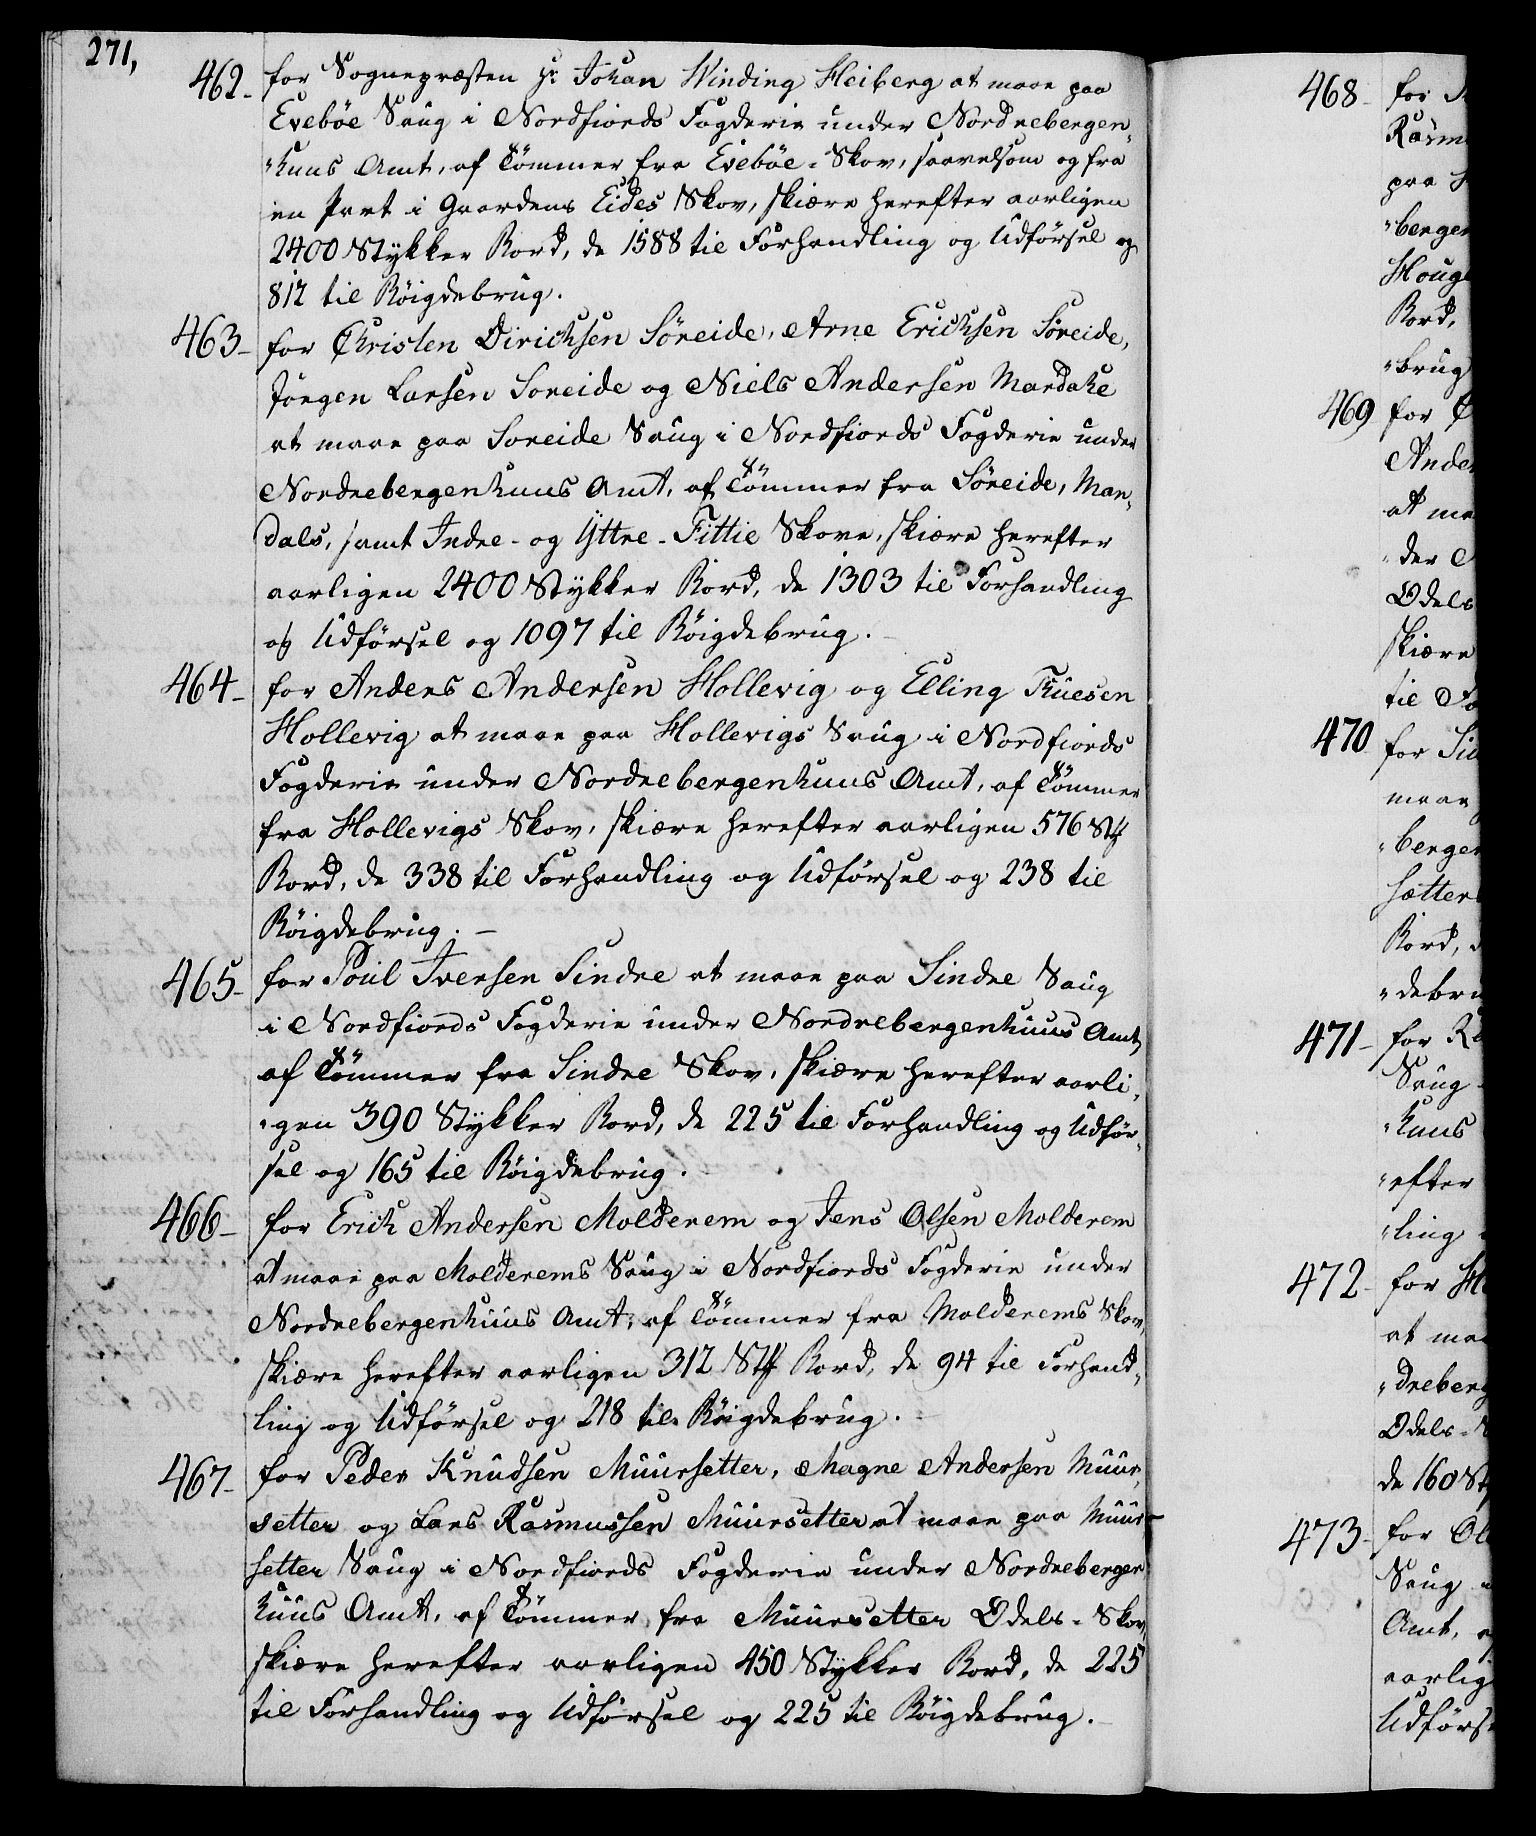 271,
462- for Sognepræsten Hr Johan Winding Heiberg at maae paa
Evebøe Saug i Nordfiords Fogderie under Nordrebergen-
"huus Amt, af Tømmer fra Evebøe-Skov, saavelsom og fra
en Part i Gaardens Eides Skov, skiære herefter aarligen
2400 Stykker Bord, de 1588 til Forhandling og Udførsel og
812 til Bøigdebrug.
463- for Christen Dirichsen Søreide, Arne Erichsen Søreide,
Jørgen Larsen Soreide og Niels Andersen Mardahe
at maae paa Soreide Saug i Nordfiords Fogderie under
Nordrebergenhuus Amt, af Tømmer fra Søreide, Man-
dals, samt Indre- og Yttre-Tittie Skove, skiære herefter
aarligen 2400 Stykker Bord, de 1303 til Forhandling
og Udførsel og 1097 til Bøigdebrug.
464- for Anders Andersen Hollevig og Elling Truesen
Hollevig at maae paa Hollevigs Saug i Nordfiords
Fogderie under Nordrebergenhuus Amt, af Tømmer
fra Hollevigs Skov, skiære herefter aarligen 576 Stk
Bord, de 338 til Forhandling og Udførsel og 238 til
Bøigdebrug. -
465- for Poul Iversen Sindre at maae paa Sindre Saug
i Nordfiords Fogderie under Nordrebergenhuus Amt,
af Tømmer fra Sindre Skov, skiære herefter aarli-
"gen 390 Stykker Bord, de 225 til Forhandling og Udfør-
sel og 165 til Bøigdebrug.
466- for Erich Andersen Molderem og Jens Olsen Molderem
at maae paa Molderems Saug i Nordfiords Fogderie under
Nordrebergenhuus Amt, af Tømmer fra Molderems Skov,
skiære herefter aarligen 312 Stk Bord, de 94 til Forhand-
ling og Udførsel og 218 til Bøigdebrug.
467- for Peder Knudsen Muursetter, Magne Andersen Muur-
setter og Lars Rasmussen Muursetter at maae paa Muur-
setter Saug i Nordfiords Fogderie under Nordrebergen
huus Amt, af Tømmer fra Muursetter Odels-Skov,
skiære herefter aarligen 450 Stykker Bord, de 225
til Forhandling og Udførsel og 225 til Bøigdebrug. -
468- for
Rasm
paa
"bergen
Houg
Bord,
"brug
469 for
Ander
at ma
"der
Odels
skiære
til Fo
470 for
maae
"bergen
sætter
Bord,
"debru
471- for
Saug
"huus
"efter
"ling
472- for
at maa
"dreberg
Odels-
de 160 St
473- for Ol
Saug
Amt, af
aarlig
Udførs